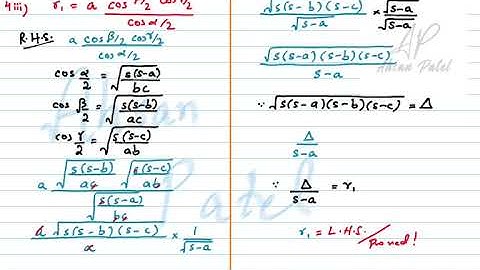 4iii) r₁ = a cos β/2 cos γ/2 / cos α/2
R.H.S: a cos β/2 cos γ/2 / cos α/2
cos α/2 = √(s(s-a)/bc)
cos β/2 = √(s(s-b)/ac)
cos γ/2 = √(s(s-c)/ab)
a √(s(s-b)/ac) √(s(s-c)/ab) / √(s(s-a)/bc)
a √(s(s-b)(s-c)) / a × 1/√(s-a)
√(s(s-b)(s-c)) / √(s-a) × √(s-a)/√(s-a)
√(s(s-a)(s-b)(s-c)) / s-a
∵ √(s(s-a)(s-b)(s-c)) = Δ
Δ / s-a
∵ Δ / s-a = r₁
r₁ = L.H.S / Proved!
AP
Ahsan Patel
Ahsan
Patel